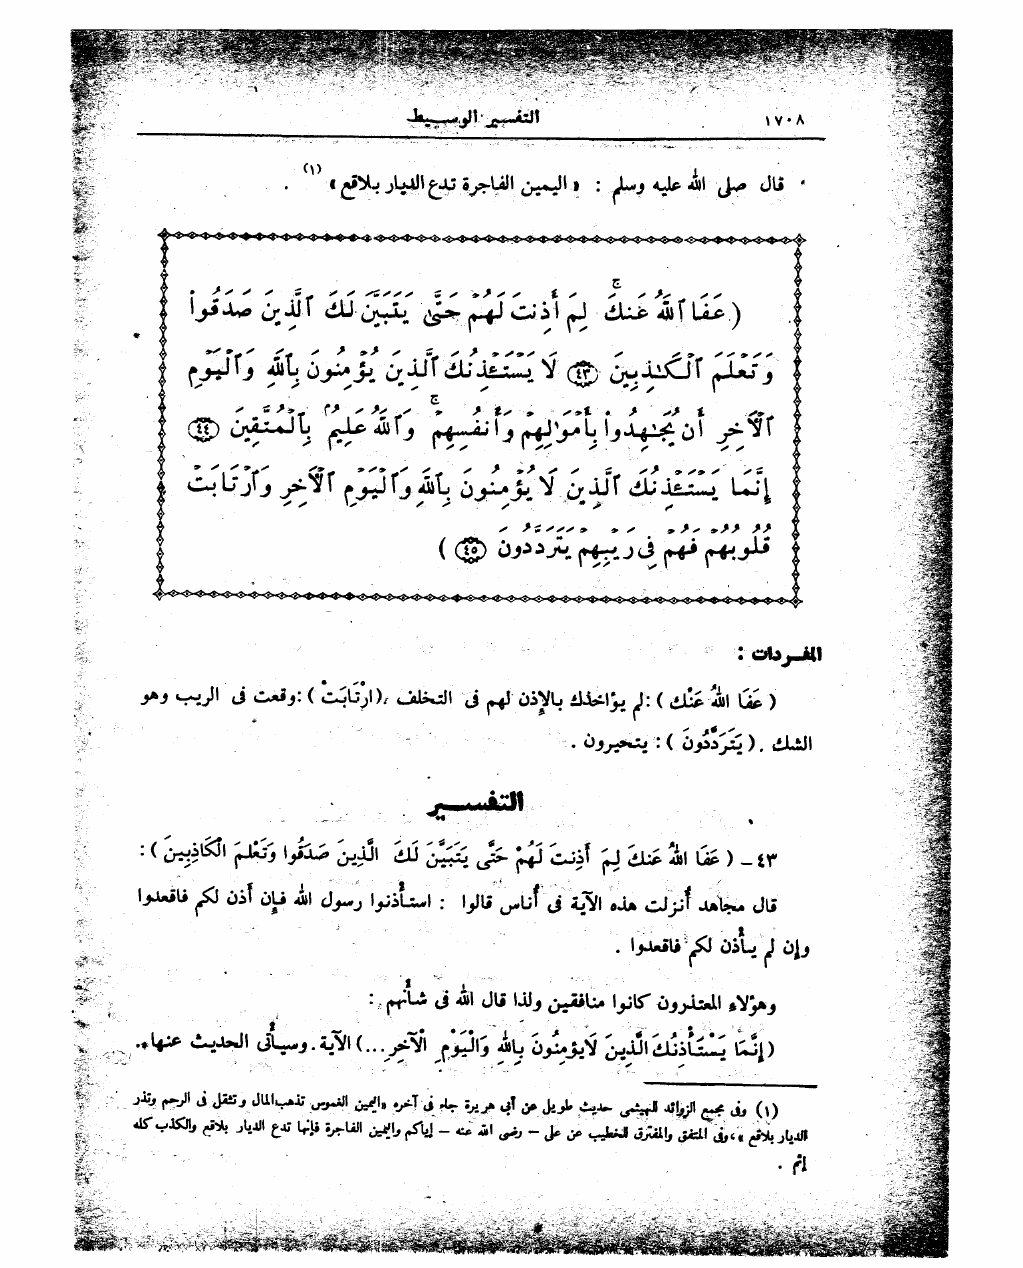 ١٧٠٨ التفسير الوسيط
قال صلى الله عليه وسلم : « اليمين الفاجرة تدع الديار بلاقع » (١) .
( عَفَا ٱللَّهُ عَنكَ ۚ لِمَ أَذِنتَ لَهُمْ حَتَّىٰ يَتَبَيَّنَ لَكَ ٱلَّذِينَ صَدَقُوا۟
وَتَعْلَمَ ٱلْكَـٰذِبِينَ ٤٣ لَا يَسْتَـْٔذِنُكَ ٱلَّذِينَ يُؤْمِنُونَ بِٱللَّهِ وَٱلْيَوْمِ
ٱلْـَٔاخِرِ أَن يُجَـٰهِدُوا۟ بِأَمْوَٰلِهِمْ وَأَنفُسِهِمْ ۚ وَٱللَّهُ عَلِيمٌۢ بِٱلْمُتَّقِينَ ٤٤
إِنَّمَا يَسْتَـْٔذِنُكَ ٱلَّذِينَ لَا يُؤْمِنُونَ بِٱللَّهِ وَٱلْيَوْمِ ٱلْـَٔاخِرِ وَٱرْتَابَتْ
قُلُوبُهُمْ فَهُمْ فِى رَيْبِهِمْ يَتَرَدَّدُونَ ٤٥ )
المفـردات :
( عَفَا اللهُ عَنْك ) : لم يؤاخذك بالإذن لهم فى التخلف ، ( ارْتَابَتْ ) : وقعت فى الريب وهو
الشك . ( يَتَرَدَّدُونَ ) : يتحيرون .
التفسـير
٤٣ – ( عَفَا اللهُ عَنكَ لِمَ أَذِنتَ لَهُمْ حَتَّى يَتَبَيَّنَ لَكَ الَّذِينَ صَدَقُوا وَتَعْلَمَ الْكَاذِبِينَ ) :
قال مجاهد أُنزلت هذه الآية فى أُناس قالوا : استأْذنوا رسول الله فإِن أَذن لكم فاقعدوا
وإن لم يأْذن لكم فاقعدوا .
وهؤلاءِ المعتذرون كانوا منافقين ولذا قال الله فى شأْنهم :
( إِنَّمَا يَسْتَأْذِنُكَ الَّذِينَ لَايؤمِنُونَ بِاللهِ وَالْيَوْمِ الْآخِرِ ... ) الآية . وسيأْتى الحديث عنها .
(١) وفى مجمع الزوائد للهيثمى حديث طويل عن أبى هريرة جاء فى آخره «اليمين الغموس تذهب المال وتثقل فى الرحم وتذر
الديار بلاقع »، وفى المتفق والمفترق للخطيب عن على – رضى الله عنه – إياكم واليمين الفاجرة فإنها تدع الديار بلاقع والكذب كله
إثم .